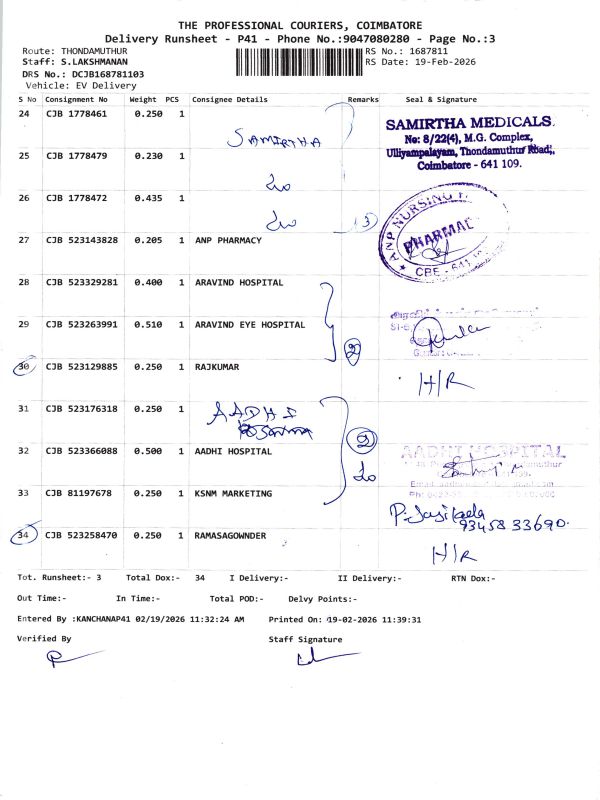 THE PROFESSIONAL COURIERS, COIMBATORE
Delivery Runsheet - P41 - Phone No.:9047080280 - Page No.:3
Route: THONDAMUTHUR
RS No.: 1687811
Staff: S.LAKSHMANAN
RS Date: 19-Feb-2026
DRS No.: DCJB168781103
Vehicle: EV Delivery
S No Consignment No Weight PCS Consignee Details Remarks Seal & Signature
24 CJB 1778461 0.250 1
SAMIRTHA
SAMIRTHA MEDICALS.
No: 8/22(4), M.G. Complex,
Ulliyampalayam, Thondamuthur Road,
Coimbatore - 641 109.
25 CJB 1778479 0.230 1
26 CJB 1778472 0.435 1
3
ANP NURSING
PHARMAC
CBE - 641
27 CJB 523143828 0.205 1 ANP PHARMACY
28 CJB 523329281 0.400 1 ARAVIND HOSPITAL
29 CJB 523263991 0.510 1 ARAVIND EYE HOSPITAL
2
30 CJB 523129885 0.250 1 RAJKUMAR
H/R
31 CJB 523176318 0.250 1
AADHI
2
32 CJB 523366088 0.500 1 AADHI HOSPITAL
AADHI HOSPITAL
33 CJB 81197678 0.250 1 KSNM MARKETING
93458 33690.
34 CJB 523258470 0.250 1 RAMASAGOWNDER
H/R
Tot. Runsheet:- 3 Total Dox:- 34 I Delivery:- II Delivery:- RTN Dox:-
Out Time:- In Time:- Total POD:- Delvy Points:-
Entered By :KANCHANAP41 02/19/2026 11:32:24 AM Printed On: 19-02-2026 11:39:31
Verified By Staff Signature